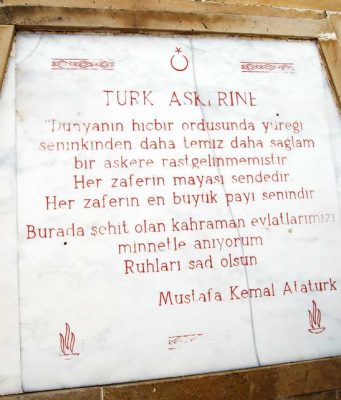 TURK ASKERINE
"Dunyanın hicbir ordusunda yuregi
seninkinden daha temiz daha sağlam
bir askere rastgelinmemistir
Her zaferin mayası sendedir.
Her zaferin en buyuk payı senindir
Burada sehit olan kahraman evlatlarımızı
minnetle anıyorum
Ruhları sad olsun
Mustafa Kemal Ataturk